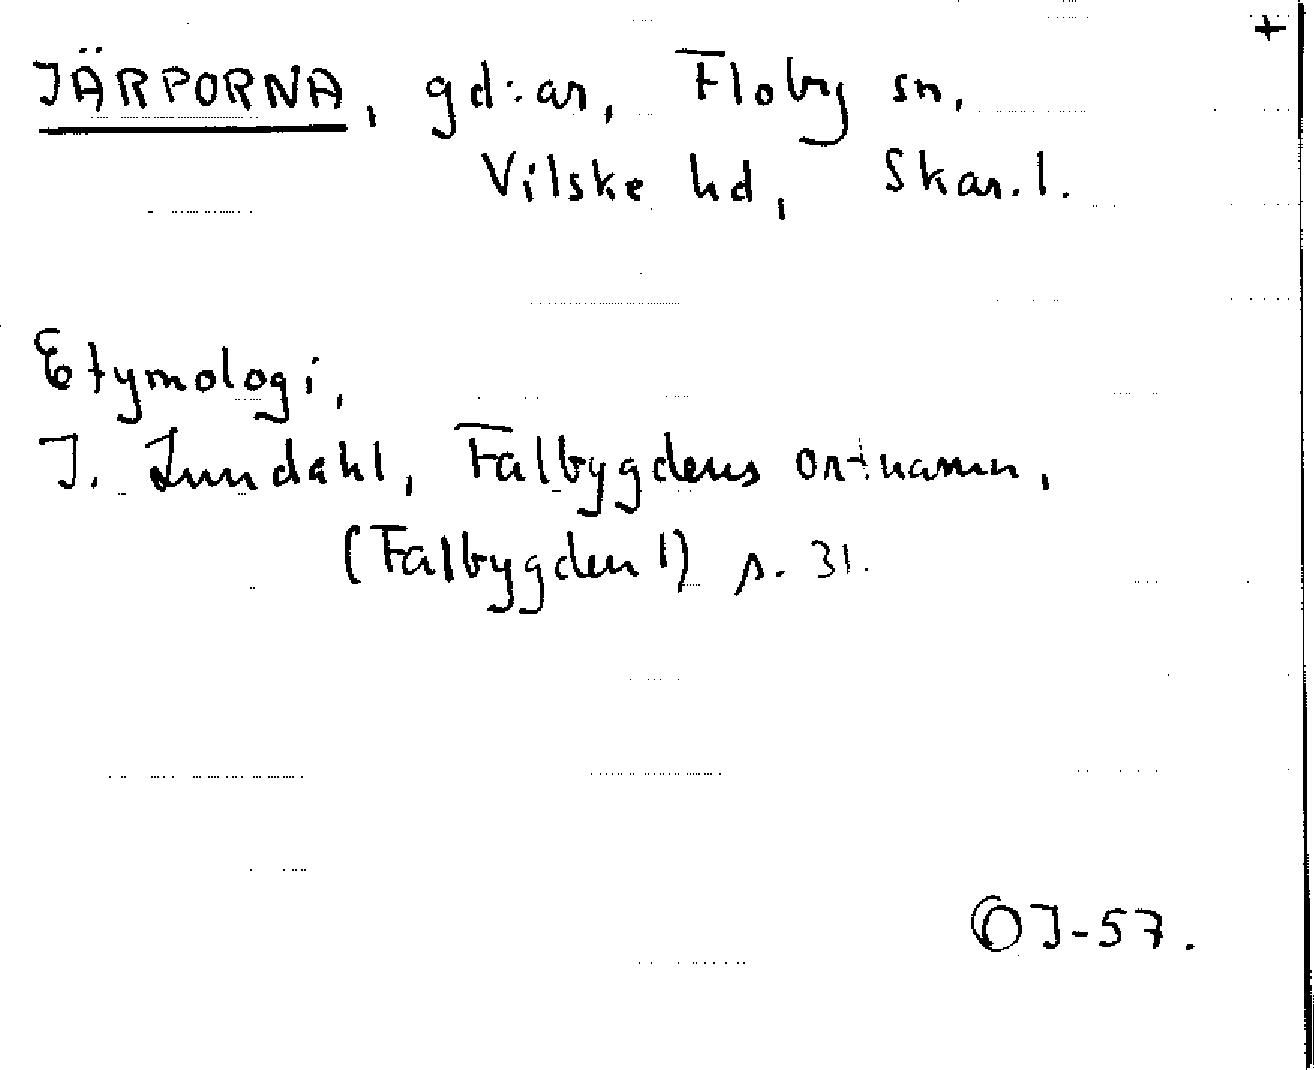 +
JÄRPORNA, gd:ar, Floby sn,
Vilske hd, Skar.l.
Etymologi,
I. Lundahl, Falbygdens ortnamn,
(Falbygden 1) s. 31.
OJ-57.